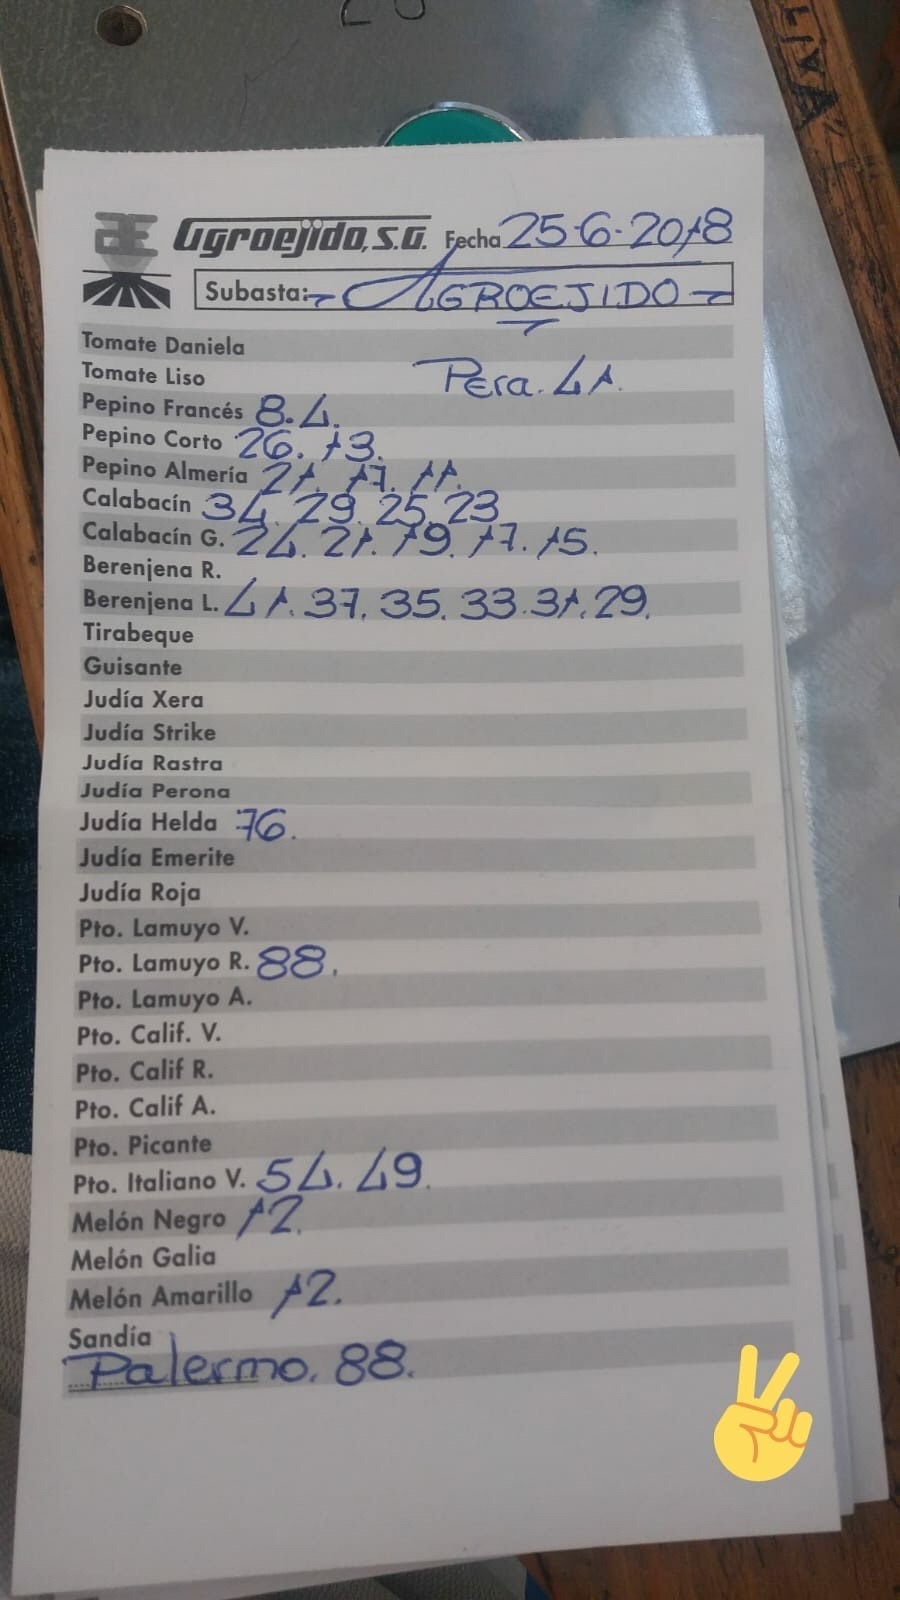 Agroejido, S.A. Fecha 25-6-2018
Subasta: AGROEJIDO
Tomate Daniela
Tomate Liso Pera. 41.
Pepino Francés 8.4.
Pepino Corto 26. 13.
Pepino Almería 21. 17. 11.
Calabacín 34. 29. 25. 23
Calabacín G. 24. 21. 19. 17. 15.
Berenjena R.
Berenjena L. 41. 37. 35. 33. 31. 29.
Tirabeque
Guisante
Judía Xera
Judía Strike
Judía Rastra
Judía Perona
Judía Helda 76.
Judía Emerite
Judía Roja
Pto. Lamuyo V.
Pto. Lamuyo R. 88.
Pto. Lamuyo A.
Pto. Calif. V.
Pto. Calif R.
Pto. Calif A.
Pto. Picante
Pto. Italiano V. 54. 49.
Melón Negro 12.
Melón Galia
Melón Amarillo 12.
Sandía
Palermo. 88.